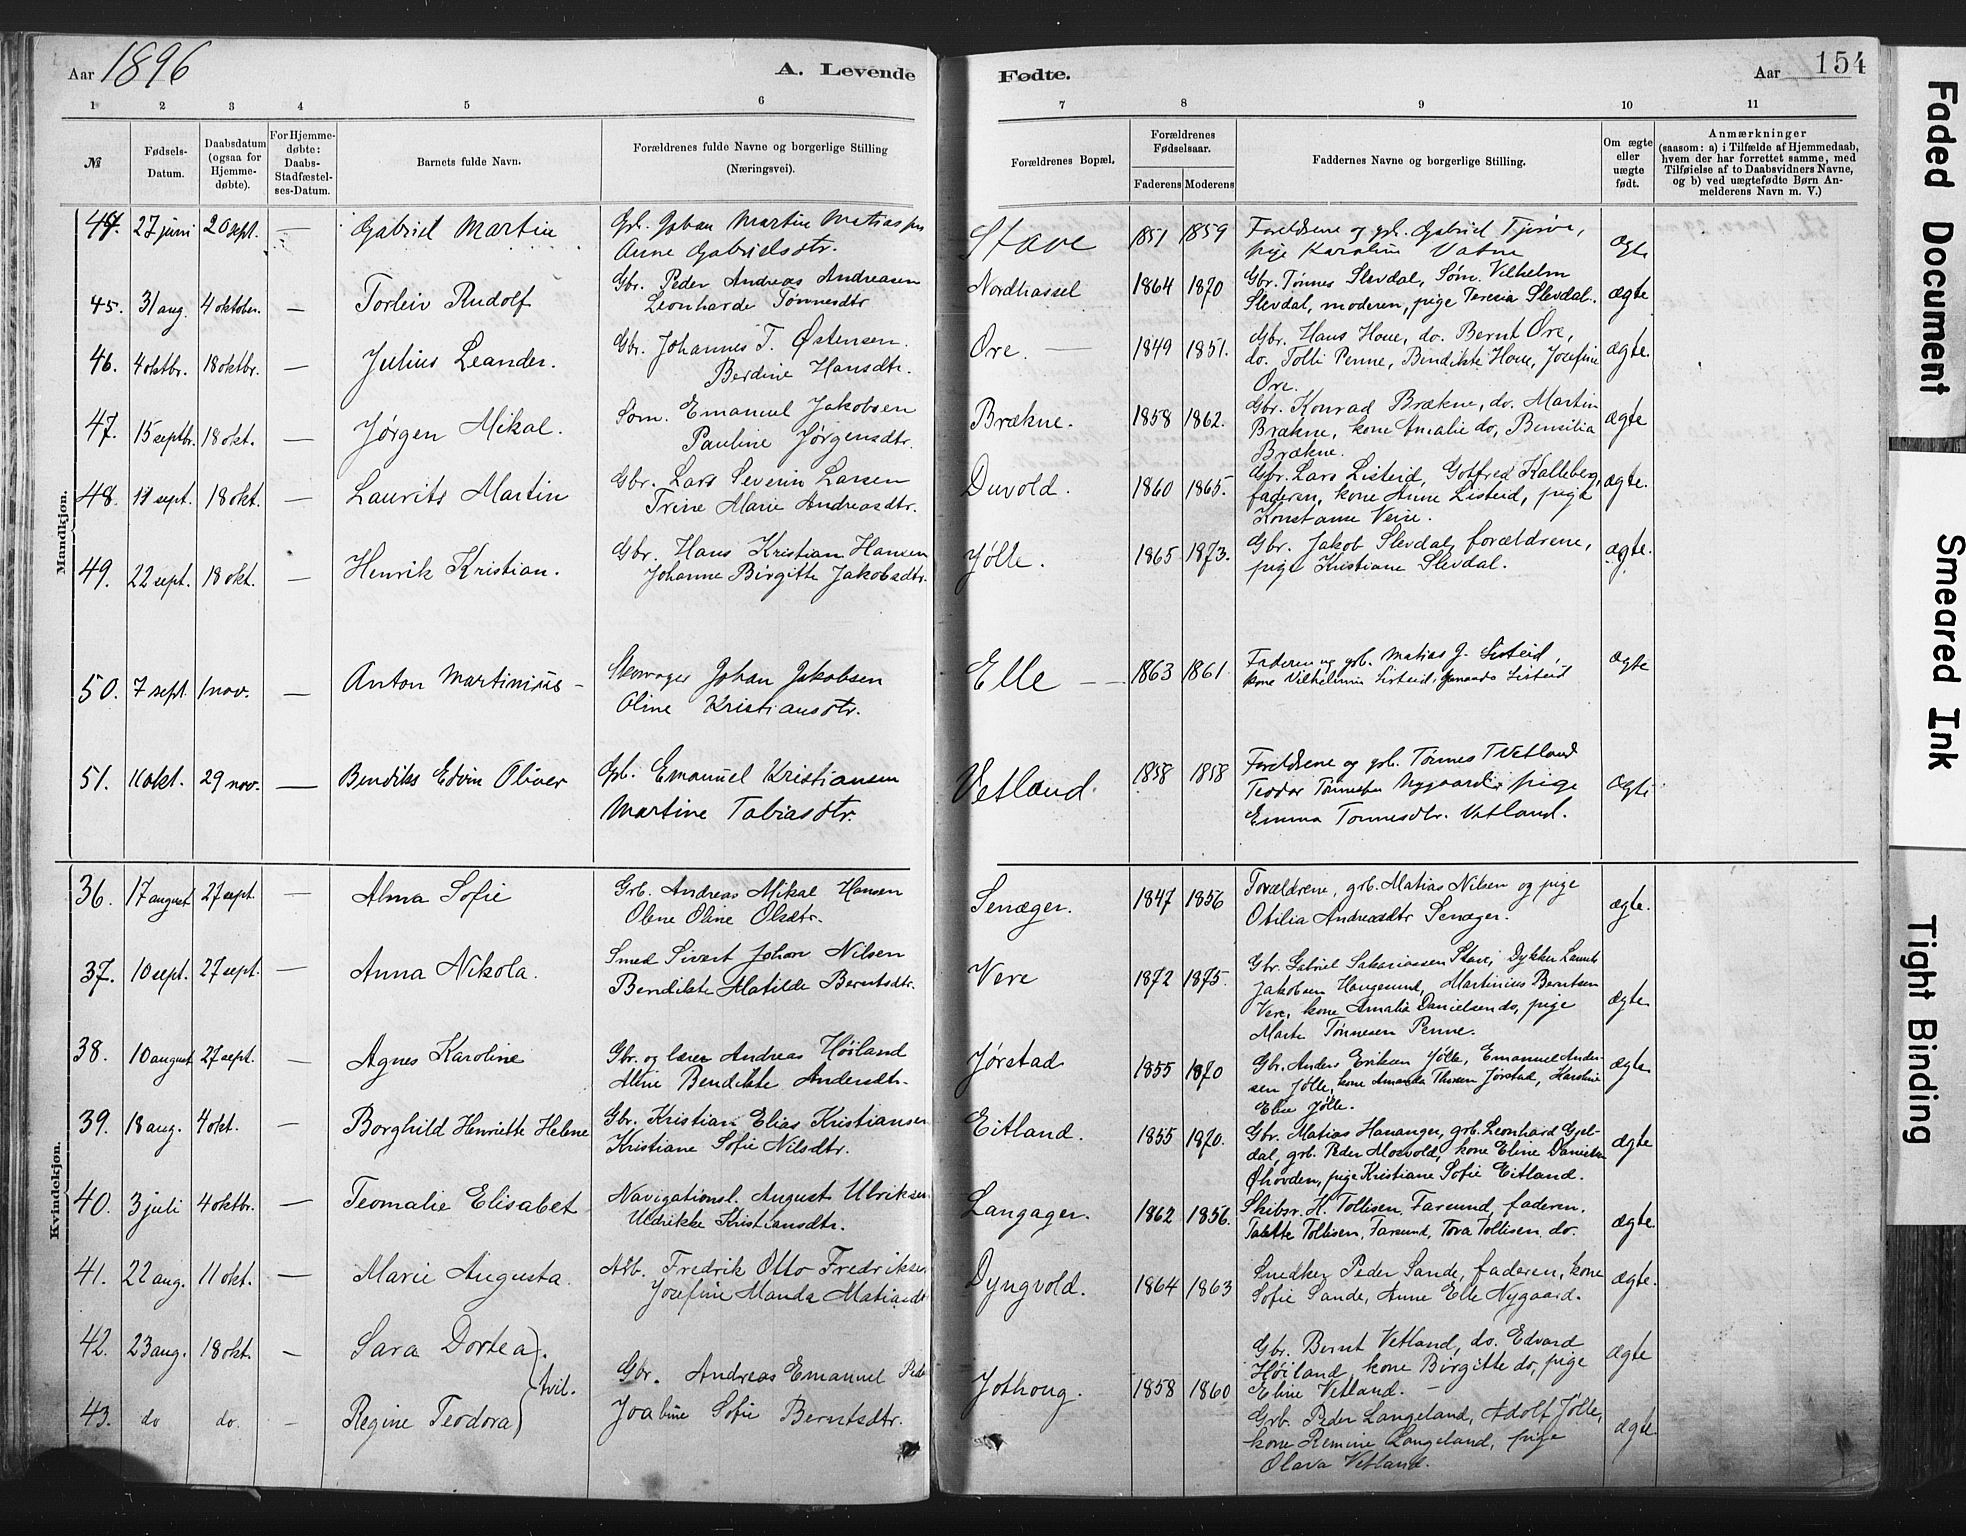 Aar 1896 A. Levende Fødte. Aar 154
1 2 3 4 5 6 7 8 9 10 11
№ Fødsels-Datum. Daabsdatum (ogsaa for Hjemme-døbte). For Hjemme-døbte: Daabs-Stadfæstel-ses-Datum. Barnets fulde Navn. Forældrenes fulde Navne og borgerlige Stilling (Næringsvei). Forældrenes Bopæl. Forældrenes Fødselsaar. Faderens Moderens Faddernes Navne og borgerlige Stilling. Om ægte eller uægte født. Anmærkninger (saasom: a) i Tilfælde af Hjemmedaab, hvem der har forrettet samme, med Tilføielse af to Daabsvidners Navne, og b) ved uægtefødte Børn An-melderens Navn m. V.)
Mandkjøn.
44. 27 juni 20 sept. — Gabriel Martin Gbr. Martin Anne Gabrielsdtr. Stave 1851 1859 Forældrene og gbr. Gabriel Tjørve, pige Karoline Vatne ægte
45. 31 aug. 4 oktober. — Torleiv Rudolf Gbr. Peder Andreas Andreasen Leonharde Tønnesdtr Nordhassel 1864 1870 Gbr. Tønnes Slevdal, Søm. Vilhelm Slevdal, moderen, pige Teresia Slevdal. ægte
46. 4 oktbr. 18 oktbr. — Julius Leander. Gbr. Johannes T. Østensen. Berdine Hansdtr. Ore. — 1849 1851. Gbr. Hans Houe, do. Bernt Øre, do. Tolli Penne, Bendikte Houe, Josefine Øre. ægte.
47. 15 septbr. 18 okt. — Jørgen Mikal. Søm. Emanuel Jakobsen Pauline Jørgensdtr. Brækne. 1858 1862. Gbr. Konrad Brækne, do. Martin Brækne, kone Amalie do, Bensilia Brækne. ægte
48. 11 sept. 18 okt. — Laurits Martin Gbr. Lars Severin Larsen Trine Marie Andreasdtr. Duvold. 1860 1865. Gbr. Lars Listeid, Gotfred Kalleberg, faderen, kone Anne Listeid, pige Konstanse Veire. ægte.
49. 22 sept. 18 okt. — Henrik Kristian. Gbr. Hans Kristian Hansen Johanne Birgitte Jakobsdtr. Jølle. 1865 1873. Gbr. Jakob Slevdal, forældrene, pige Kristiane Slevdal. ægte.
50. 7 sept 1 nov. — Anton Martinius — Johan Jakobsen Oline Kristiansdtr. Elle — 1863 1861 Faderen og gbr. Matias J. Listeid, kone Vilhelmine Listeid, Listeid ægte
51. 11 okt. 29 nov. — Bendiks Edvin Oliver Gbr. Emanuel Kristiansen Martine Tobiasdtr. Vetland. 1858 1858 Forældrene og gbr. Tønnes T Vetland Teodor Nygaard, pige Emma Tønnesdtr. Vetland. ægte
Kvindekjøn.
36. 17 august 27 sept. — Alma Sofie Grb. Andreas Mikal Hansen Olene Oline Olsdtr. Senæger. 1847 1856 Forældrene, grb. Matias Nilsen og pige Otilia Andreasdtr Senæger. ægte.
37. 10 sept. 27 sept. — Anna Nikola. Smed Sivert Johan Nilsen Bendikte Matilde Berntsdtr. Vere 1872 1875. Gbr. Gabriel Sakariassen Stave, Dykker Jakobsen Haugesund, Martinius Berntsen Vere, kone Amalia Danielsen do, pige Marte Tønnesen Penne. ægte
38. 10 august 27 sept. — Agnes Karoline Gbr. og lærer Andreas Høiland Bendikte Andersdtr. Jørstad 1855 1870 Gbr. Anders Eriksen Jølle, Emanuel Ander-sen Jølle, kone Amanda Jørstad, Karoline Elise Jølle. ægte
39. 18 aug. 4 okt. — Borghild Henriette Helene Gbr. Kristian Elias Kristiansen Kristiane Sofie Nilsdtr. Eitland. 1855 1870. Gbr. Matias Hananger, grb. Leonhard Gjel-dal, grb. Peder Mosvold, kone Eline Danielsen Øhovden, pige Kristiane Sofie Eitland. ægte
40. 3 juli 4 oktbr. — Teomalie Elisabet Navigationsl. August Ulriksen Uldrikke Kristiansdtr. Langager. 1862 1856. Skibsr. H. Tollisen, Farsund, faderen. Talette Tollisen, Farsund, Tora Tollisen do. ægte.
41. 22 aug. 11 okt. — Marie Augusta. Arb. Fredrik Otto Fredriksen Josefine Manda Matiasdt Dyngvold. 1864 1863 Snedker Peder Sande, faderen, kone Sofie Sande, Anne Elle Nygaard. ægte.
42. 23 aug. 18 okt. — Sara Dortea. tvil. Gbr. Andreas Emanuel Ped Joabine Sofie Berntsdtr. Jothoug. 1858 1860 Gbr. Bernt Vetland, do. Edvard Høiland, kone Birgitte do, pige Eline Vetland. — ægte
43. do do. — Regine Teodora Grb. Peder Langeland, Adolf Jølle, kone Remine Langeland, pige Olava Vetland. ægte.
Faded Document
Smeared Ink
Tight Binding